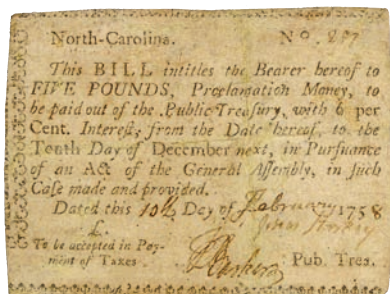 North-Carolina. No. 297
This BILL intitles the Bearer hereof to
FIVE POUNDS, Proclamation Money, to
be paid out of the Public Treasury, with 6 per
Cent. Interest, from the Date hereof, to the
Tenth Day of December next, in Pursuance
of an Act of the General Assembly, in such
Case made and provided.
Dated this 10th Day of February 1758
£.
To be accepted in Pay-
ment of Taxes
Pub. Trea.